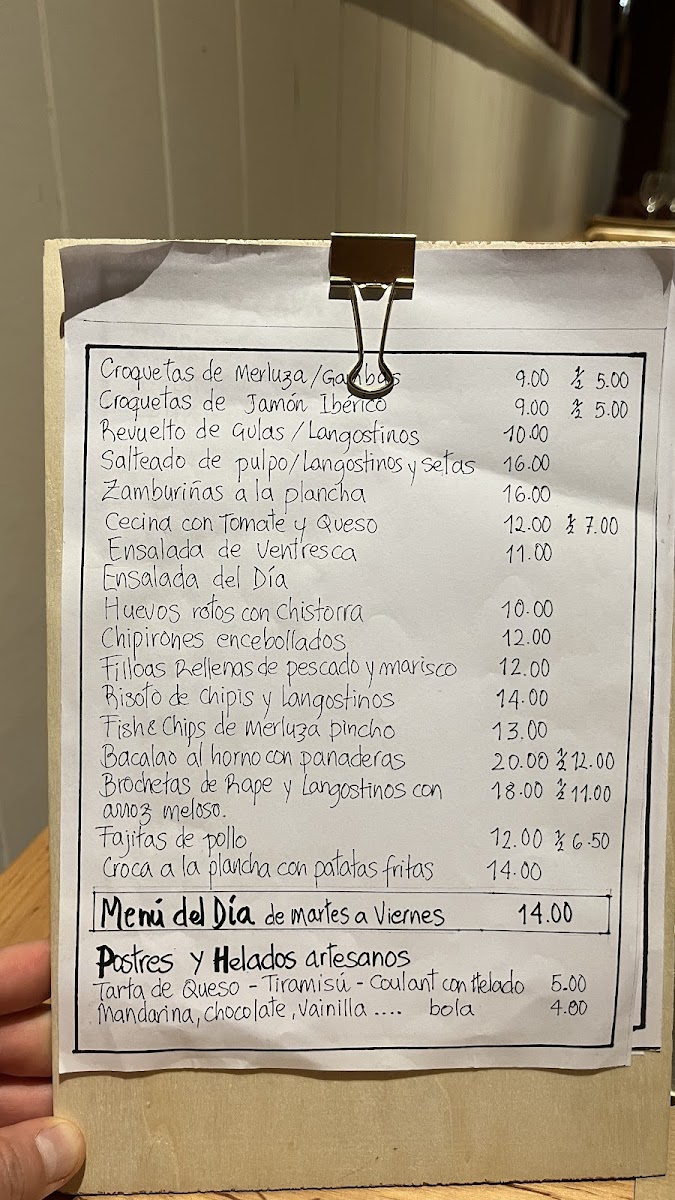 Croquetas de Merluza/Gambas 9.00 ½ 5.00
Croquetas de Jamón Ibérico 9.00 ½ 5.00
Revuelto de Gulas/Langostinos 10.00
Salteado de pulpo/Langostinos y setas 16.00
Zamburiñas a la plancha 16.00
Cecina con Tomate y Queso 12.00 ½ 7.00
Ensalada de Ventresca 11.00
Ensalada del Día
Huevos rotos con chistorra 10.00
Chipirones encebollados 12.00
Filloas Rellenas de pescado y marisco 12.00
Risoto de chipis y Langostinos 14.00
Fish & Chips de Merluza pincho 13.00
Bacalao al horno con panaderas 20.00 ½ 12.00
Brochetas de Rape y Langostinos con 18.00 ½ 11.00
arroz meloso.
Fajitas de pollo 12.00 ½ 6.50
Croca a la plancha con patatas fritas 14.00
Menú del Día de martes a Viernes 14.00
Postres y Helados artesanos
Tarta de Queso - Tiramisú - Coulant con Helado 5.00
Mandarina, chocolate, Vainilla .... bola 4.00